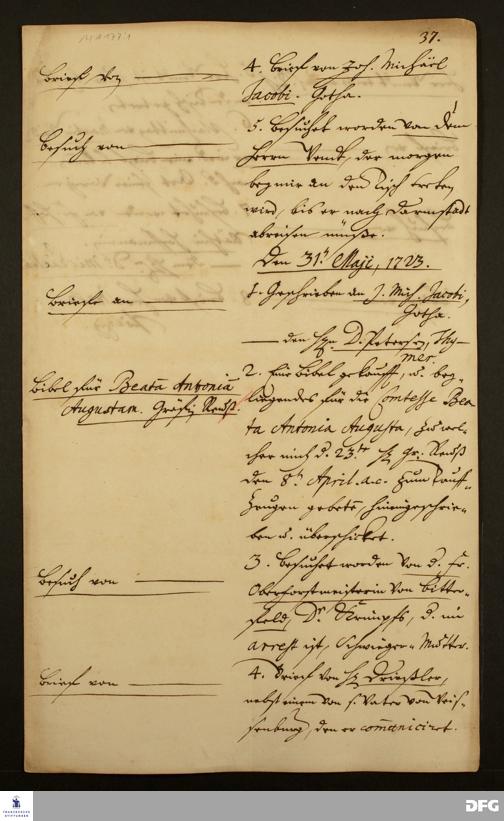 37.
Brieff von
4. Brieff von Joh. Michäel
Jacobi. Gotha.
Besuch von
5. Besuchet worden von dem
Herrn Venck, der morgen
bey mir an den Tisch treten
wird, bis er nach Darmstadt
abreisen müße.
Den 31t. Maji, 1723.
Briefe an
1. Geschrieben an J. Mich. Jacobi,
Gotha.
den Hn. D. Petersen, Thy-
mer.
Bibel für Beatā Antoniā
Augustam. Gräfin Reuß.
2. Eine Bibel gekaufft, u. bey-
liegendes für die Comtesse Bea-
ta Antonia Augusta, zu wel-
cher mich d. 23te H. Gr. Reuß
den 8t. April. a.c. zum Tauff-
zeugen gebetē, hineingeschrie-
ben u. überschicket.
Besuch von
3. Besuchet worden von d. Fr.
Oberforstmeisterin von Bitter-
feld, Dr. Strumpfs, d. im
arrest ist, Schwieger-Mutter.
Brieff von
4. Brieff von H. Drießler,
nebst einem von s. Vater von Weis-
senburg, den er com̄uniciret.
FRANCKESCHE
STIFTUNGEN
DFG